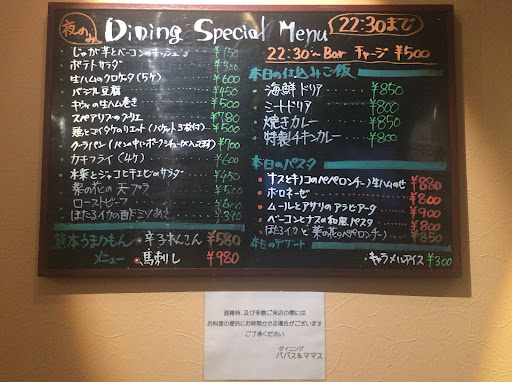 夜のみ Dining Special Menu 22:30まで
22:30〜Bar チャージ ¥500
じゃが芋とベーコンの
ポテトサラダ ¥300
生ハムのクロケッタ(5ケ) ¥600
バジル豆腐 ¥450
キウイの生ハム巻き ¥500
スペアリブのグリエ ¥780
鶏とマイタケのリエット(バケット3枚付) ¥500
グーラパン(パンの中にポークシチューが入ってます) ¥700
カキフライ(4ケ) ¥600
水菜とジャコと干エビのサラダ ¥450
菜の花の天プラ ¥500
ローストビーフ
ほたるイカの酢ミソあえ ¥390
熊本うまかもん
メニュー
辛子れんこん ¥580
馬刺し ¥980
本日の仕込みご飯
海鮮ドリア ¥850
ミートドリア ¥800
焼きカレー ¥850
特製チキンカレー ¥800
本日のパスタ
ナスとキノコのペペロンチーノ生ハムのせ ¥880
ボロネーゼ ¥800
ムールとアサリのアラビアータ ¥900
ベーコンとナスの和風パスタ ¥800
ほたるイカと菜の花のペペロンチーノ ¥850
本日のデザート
キャラメルアイス ¥300
混雑時、及び多数ご来店の際には
お料理の提供にお時間かかる場合がございます
ご了承ください
ダイニング
パパス&ママス